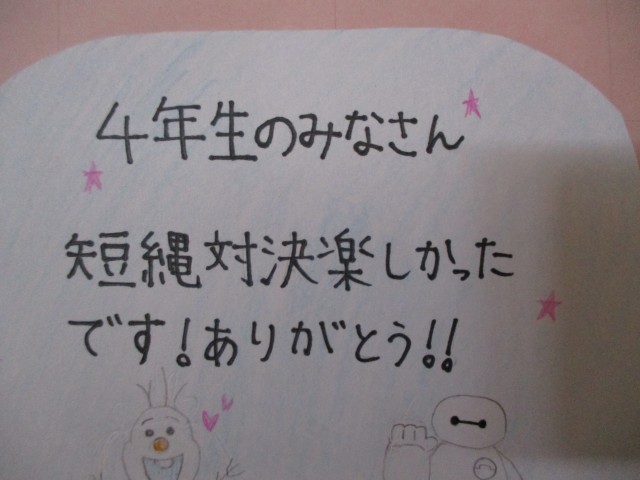 4年生のみなさん
短縄対決楽しかった
です!ありがとう!!